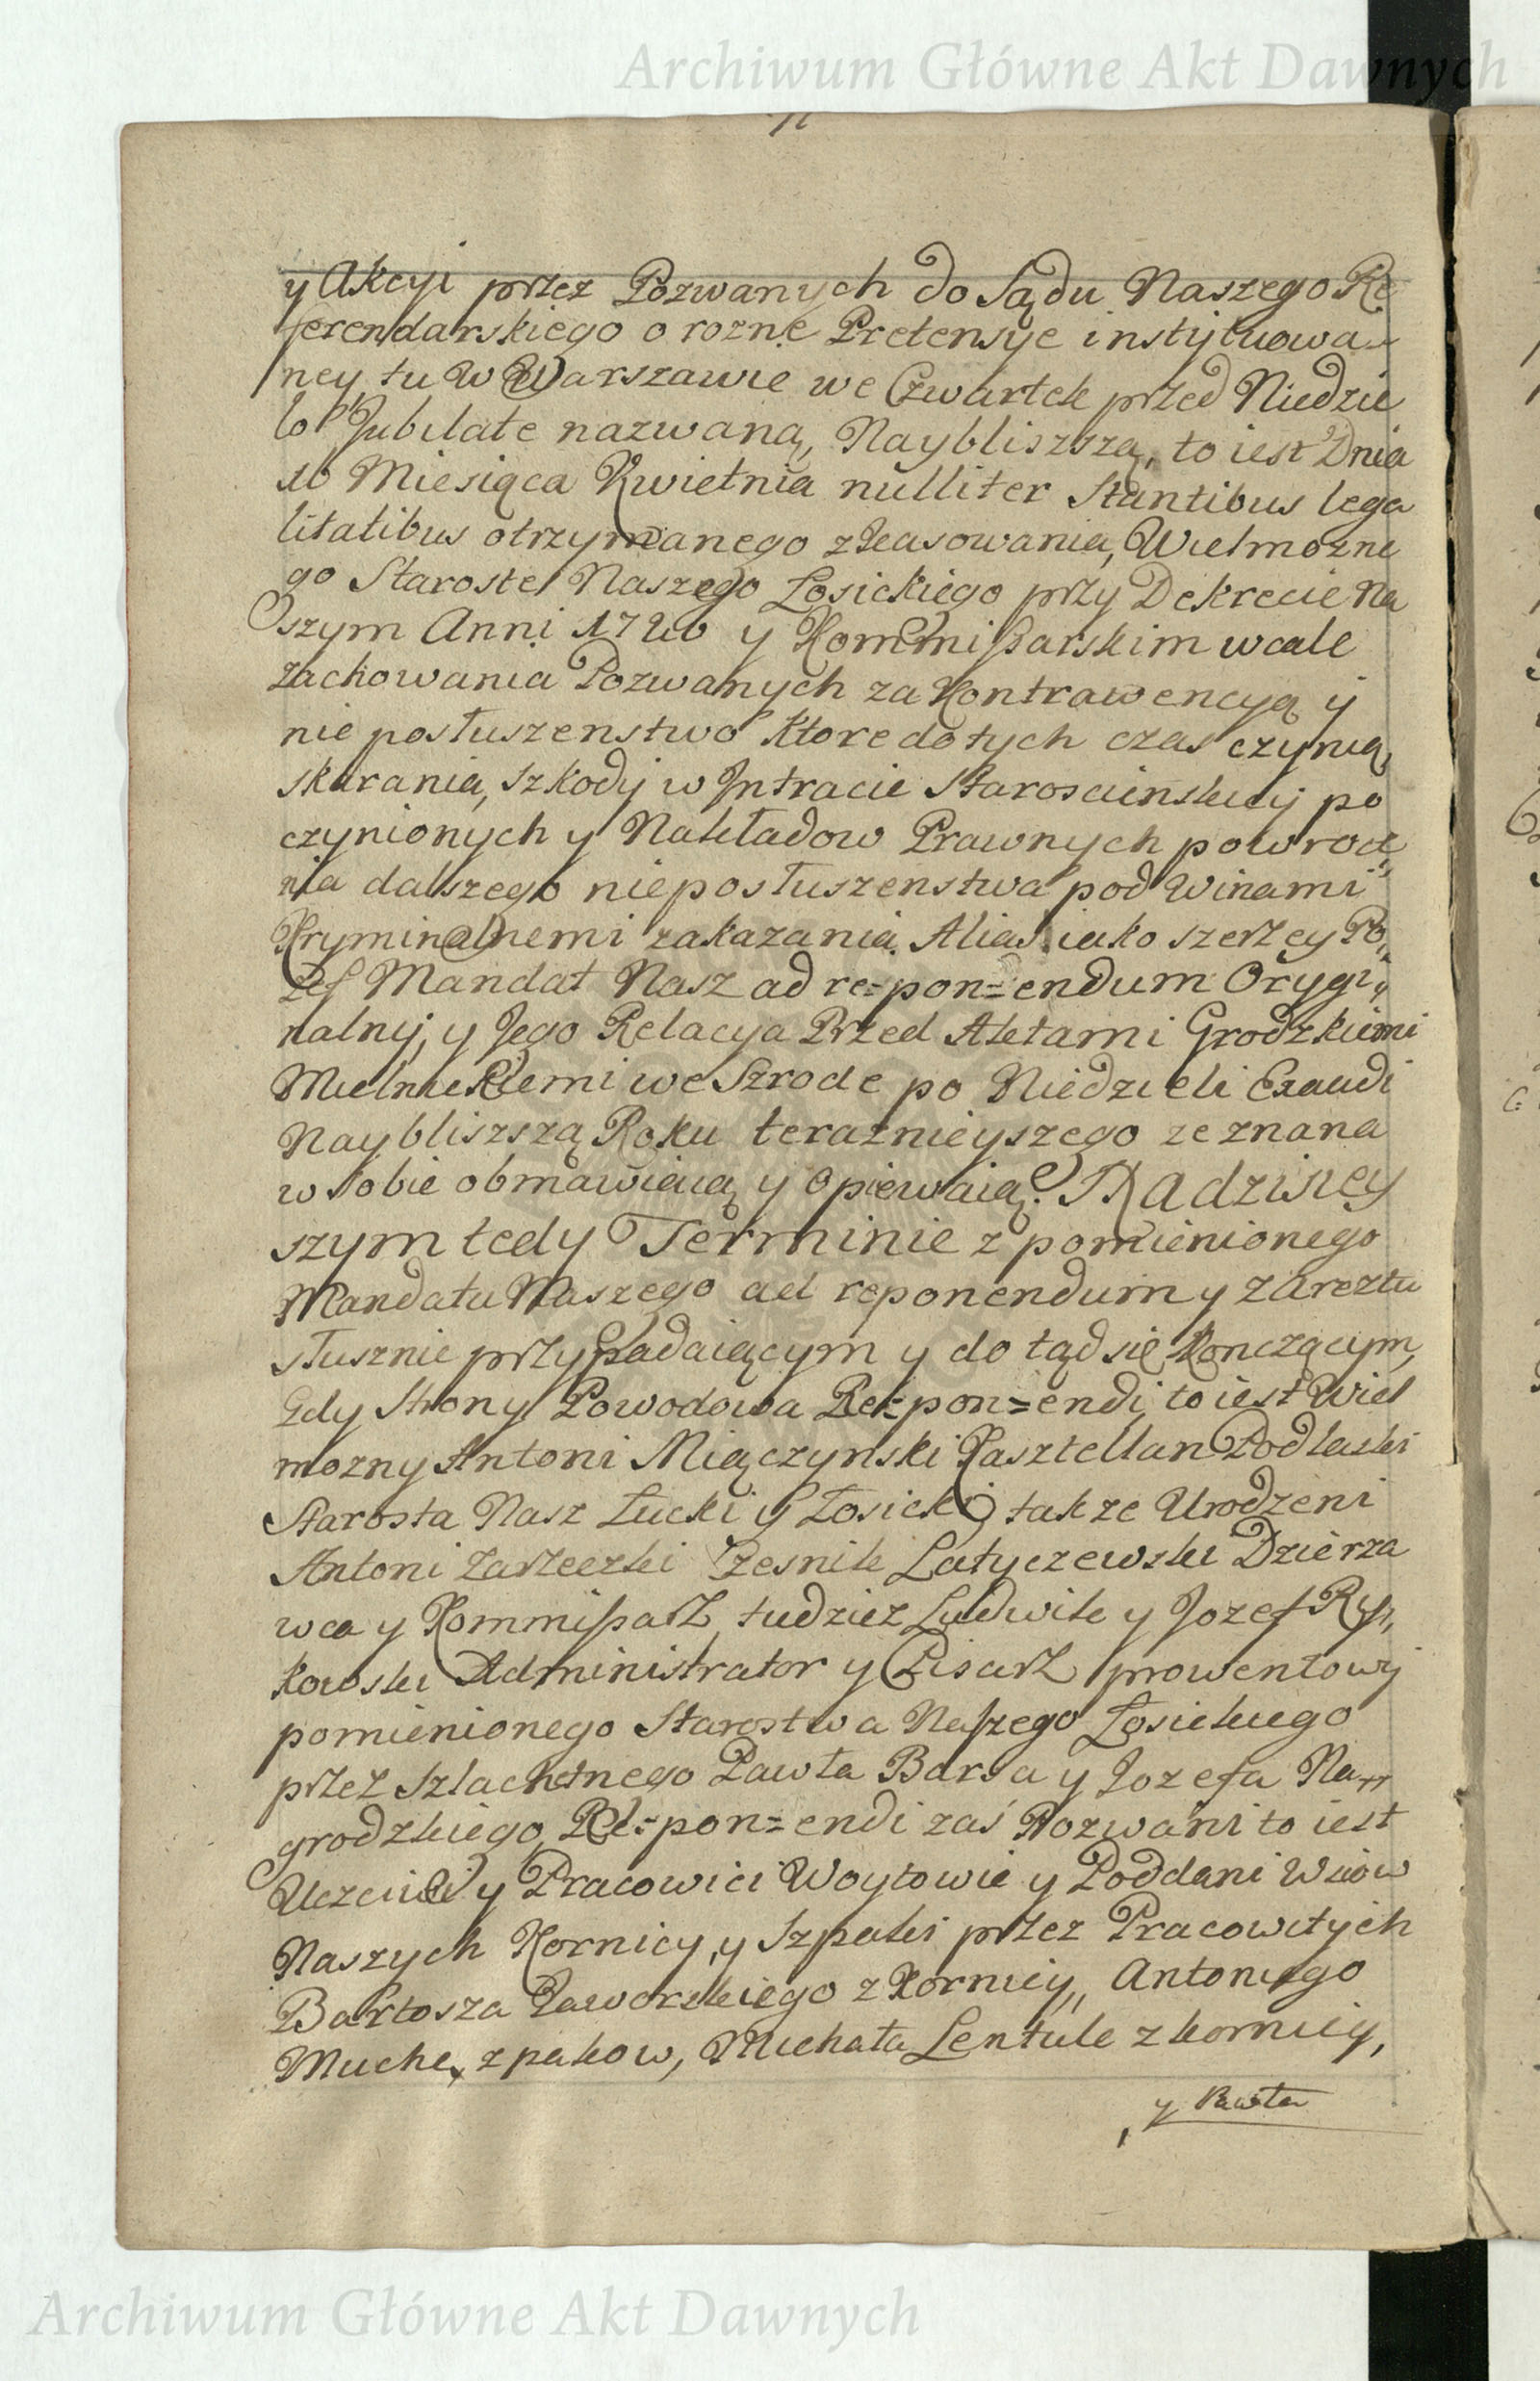 Archiwum Główne Akt Dawnych
y Akcyi przez Pozwanych do Sądu Naszego Re
ferendarskiego o rozne Pretensye instytuowa-
ney tu w Warszawie we Czwartek przed Niedzie
lo Jubilate nazwaną, Naybliszszą, to iest Dnia
16 Miesiąca Kwietnia nulliter Stantibus lega
litatibus otrzymanego zkasowania, Wielmozne
go Staroste Naszego Łosickiego przy Dekrecie Na
szym Anni 1720 y Kommißarskim wcale
zachowania Pozwanych za Kontrawencyą y
nie posłuszenstwo ktore do tych czas czynią,
skarania, szkody w Jntracie Staroscinskiey po
czynionych y Nakładow Prawnych powroce,,
nia dalszego nieposłuszenstwa pod Winami
Kryminalnemi zakazania. Alias iako szerzey Po,,
zef Mandat Nasz ad re=pon=endum Orygi,,
nalny, y Jego Relacya Przed Aktami Grodzkiemi
Mielnickiemi we Szrode po Niedzieli Exaudi
Naybliszszą Roku teraznieyszego zeznana
w sobie obmawiaią y opiewaią. Na dzisiey
szym tedy Terminie z pomienionego
Mandatu Naszego ad reponendum y z Aresztu
słusznie przypadaiącym y do tąd się konczącym,
Gdy Strony Powodowa Re=pon=endi, to iest Wiel
mozny Antoni Miączynski Kasztellan Podlaski
Starosta Nasz Łucki y Łosicki, takze Urodzeni
Antoni Zarzecki Czesnik Latyczewski Dzierza
wca y Kommißarz, tudziez Ludwik y Jozef Ry,,
kowski Administrator y Pisarz prowentowy
pomienionego Starostwa Naszego Łosickiego
przez Szlachetnego Pawła Barsa y Jozefa Na,,
grodzkiego, Re=pon=endi zaś Pozwani to iest
Uczciwi y Pracowici Woytowie y Poddani Wsiow
Naszych Kornicy, y Szpaki przez Pracowitych
Bartosza Jaworskiego z Kornicy, Antoniego
Muche, z pakow, Michała Lentule z kornicy,
y Pawła
Archiwum Główne Akt Dawnych